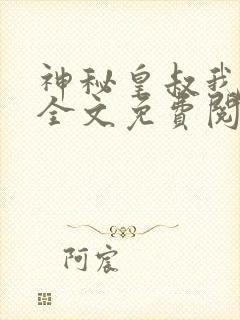 神秘皇叔我
全文免費閱
阿宸